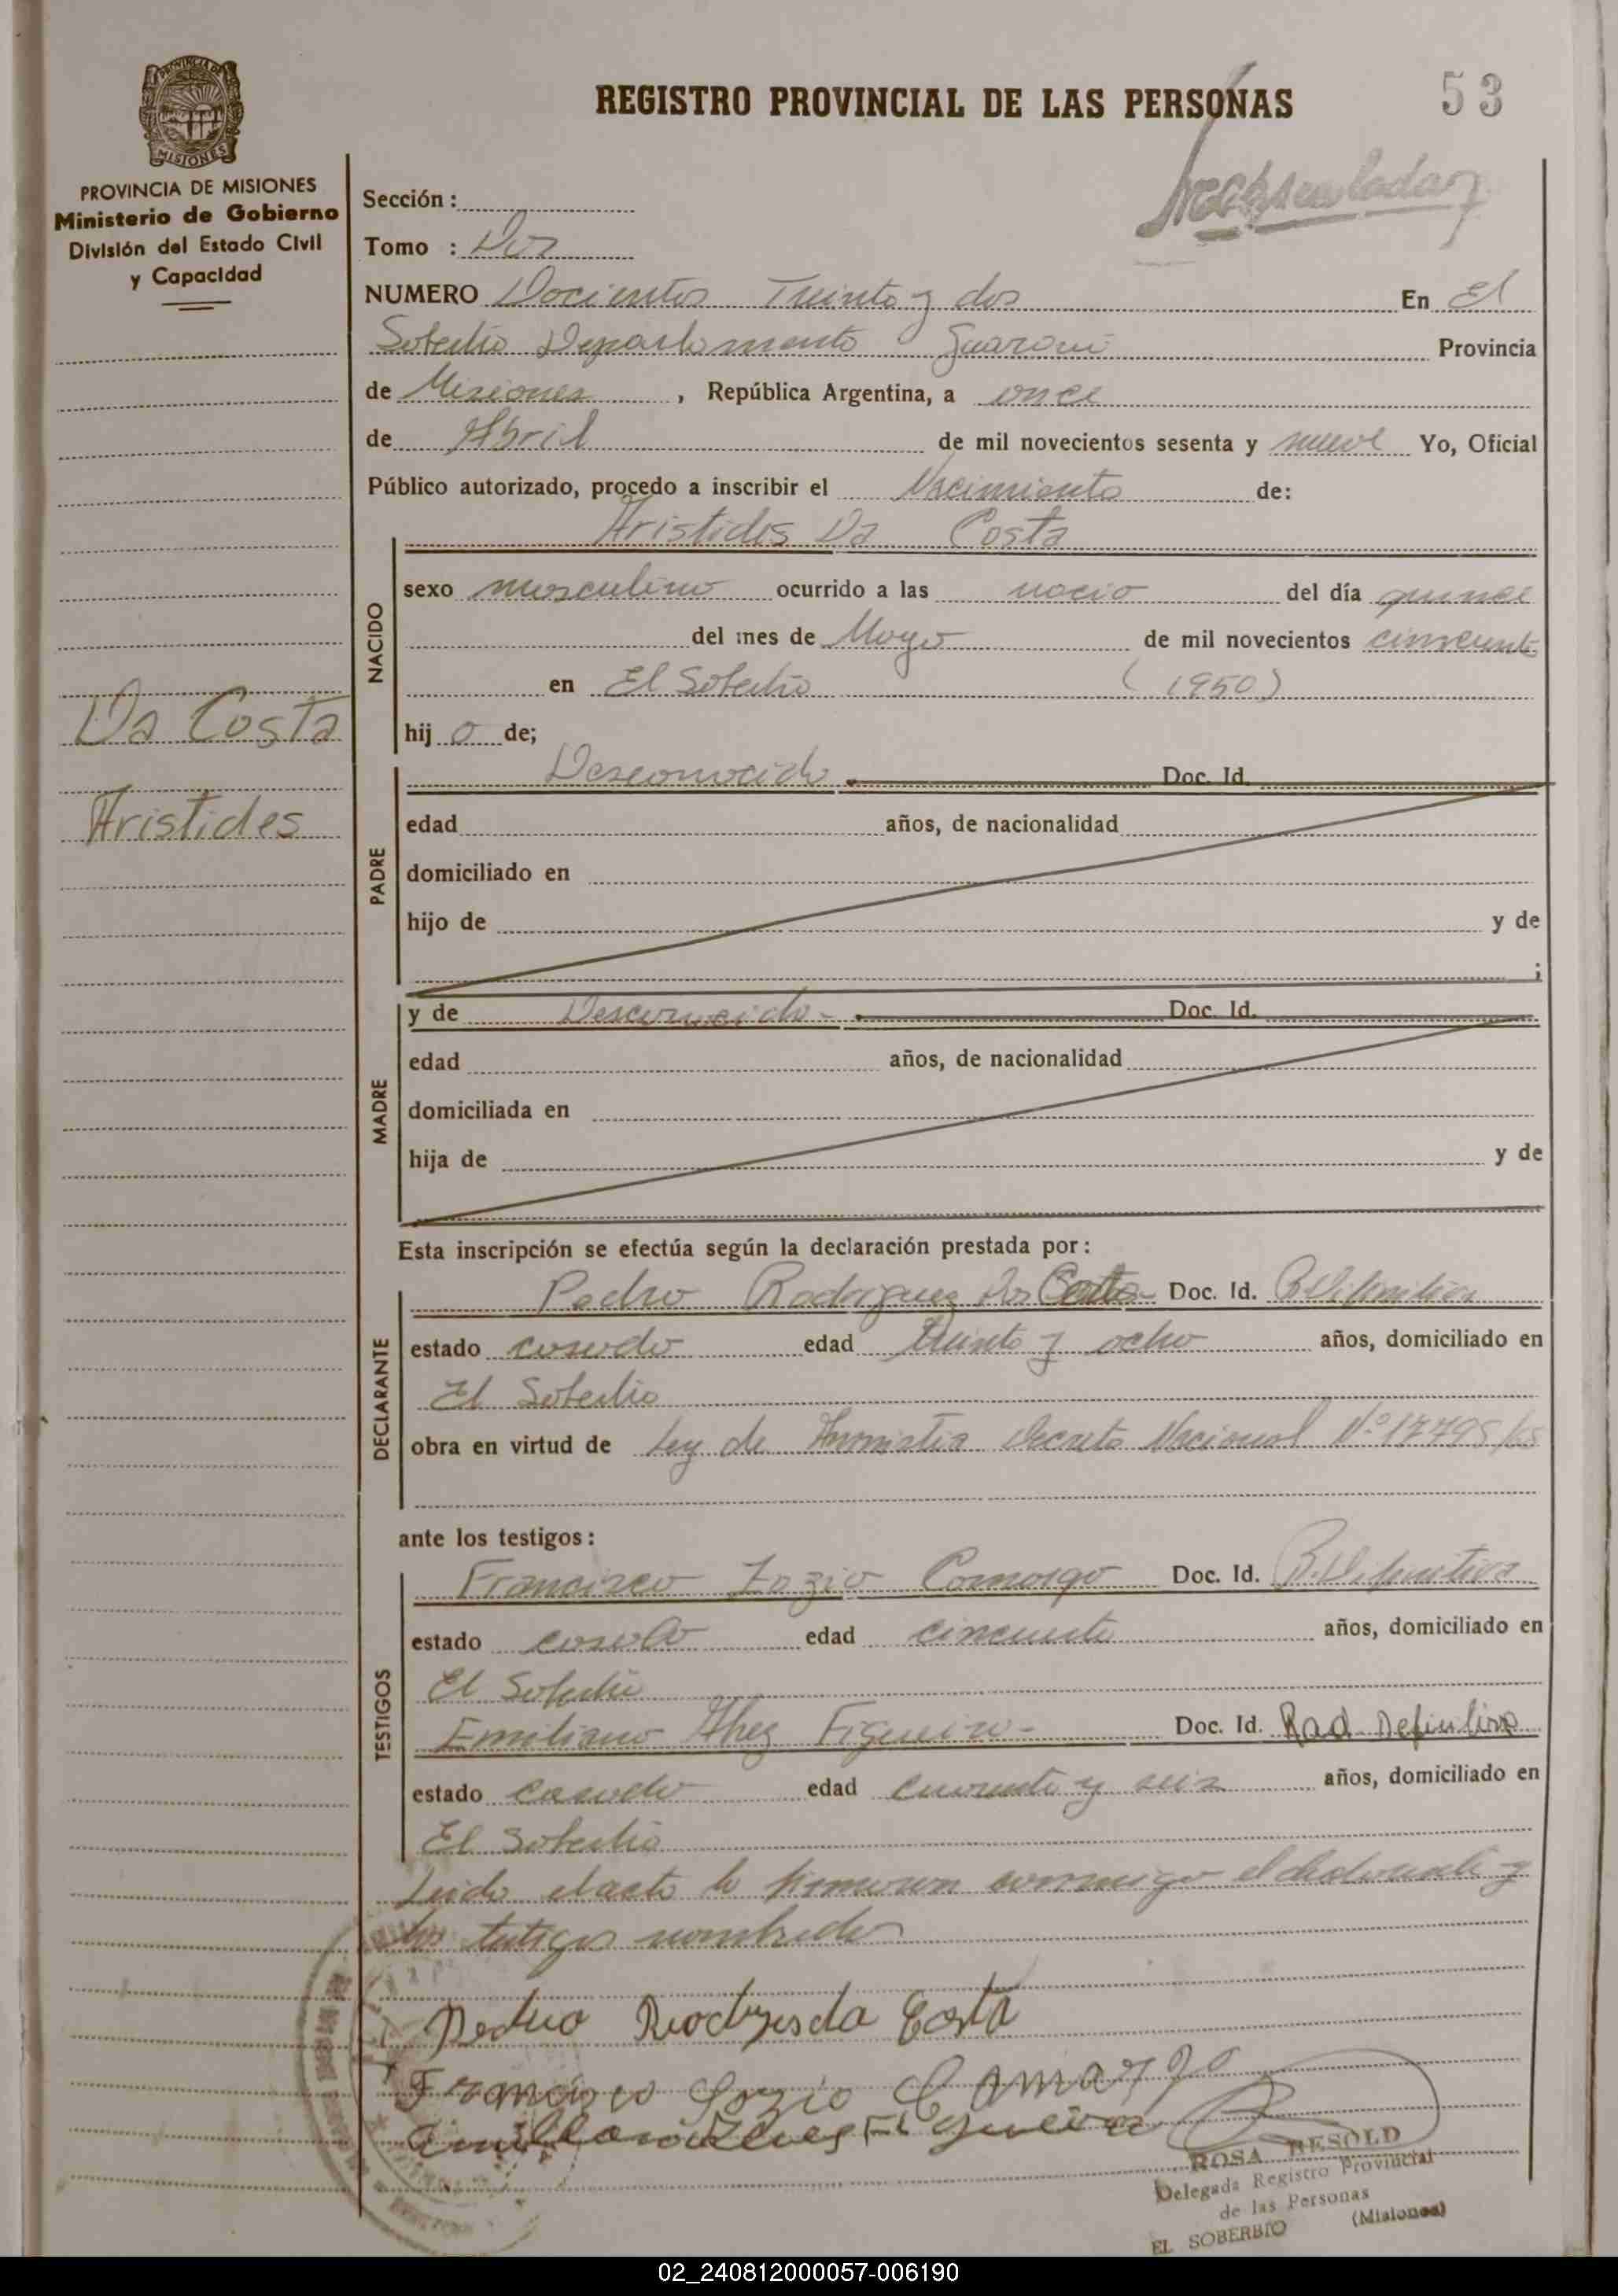 REGISTRO PROVINCIAL DE LAS PERSONAS
53
PROVINCIA DE MISIONES
Ministerio de Gobierno
División del Estado Civil
y Capacidad
Sección :
Tomo : Dos
NUMERO Docientos Treinta y dos En El
Soberbio Departamento Guaraní Provincia
de Misiones , República Argentina, a once
de Abril de mil novecientos sesenta y nueve Yo, Oficial
Público autorizado, procedo a inscribir el Nacimiento de:
Aristides Da Costa
NACIDO
sexo masculino ocurrido a las nacio del día quince
del mes de Mayo de mil novecientos cincuenta
en El Soberbio (1950)
hij o de;
Da Costa
Aristides
PADRE
Desconocido Doc. Id.
edad años, de nacionalidad
domiciliado en
hijo de y de
;
MADRE
y de Desconocido - Doc. Id.
edad años, de nacionalidad
domiciliada en
hija de y de
Esta inscripción se efectúa según la declaración prestada por:
DECLARANTE
Pedro Rodriguez Da Costa- Doc. Id.
estado casado edad treinta y ocho años, domiciliado en
El Soberbio
obra en virtud de Ley de Amnistia Decreto Nacional Nº 17795/68
ante los testigos:
TESTIGOS
Francisco Camargo Doc. Id.
estado casado edad cincuenta años, domiciliado en
El Soberbio
Emiliano Figueira - Doc. Id. Rad Definitiva
estado casado edad cuarenta y seis años, domiciliado en
El Soberbio
Leido el acta lo firmaron conmigo el declarante y
los testigos nombrados
Pedro da Costa
Francisco Camargo
ROSA RESOLD
Delegada Registro Provincial
de las Personas
EL SOBERBIO (Misiones)
02_240812000057-006190